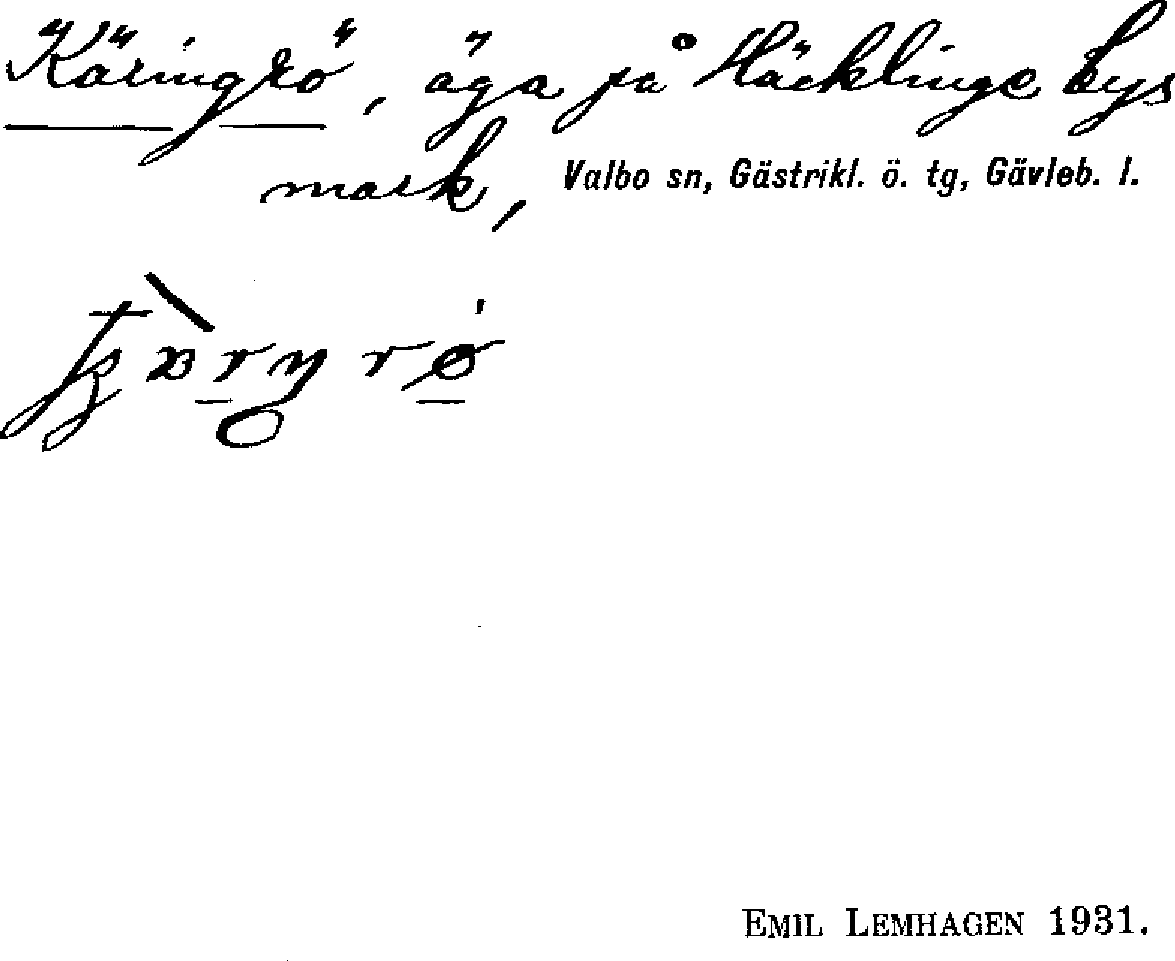 "Käringrö", äga på Häcklinge bys
mark, Valbo sn, Gästrikl. ö. tg, Gävleb. l.
EMIL LEMHAGEN 1931.